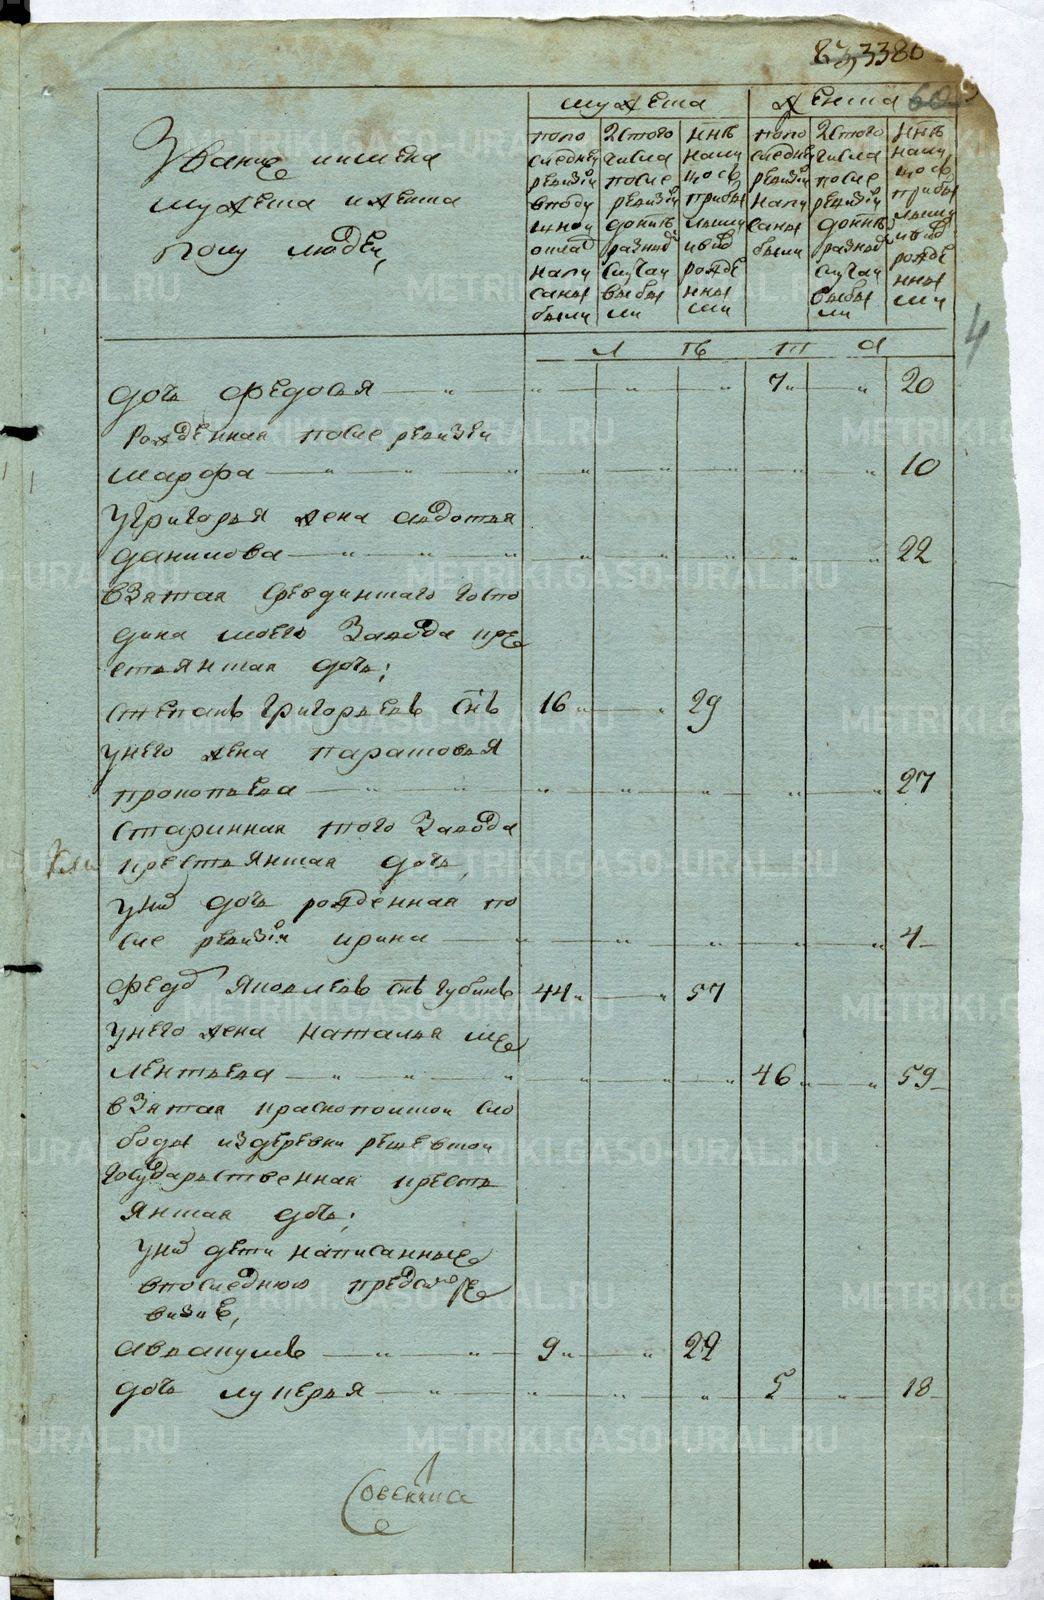 83, 3380
60
4
мужеска
женска
Звание имиена
мужеска ижеска
полу людей,
попо
следней
ревизии
вподу
шной
оклад
напи
саны
были
2 Стого
числа
после
ревизiи
доннѣ
разныѣ
случаи
выбы
ли
ннѣ
нали
цо съ
прибы
лыми
ивнов
рожде
нны
ми
попо
следней
ревизiи
напи
саны
были
2 Стого
числа
после
ревизiи
доннѣ
разныѣ
случаи
выбы
ли
ннѣ
нали
цо съ
прибы
лыми
ивнов
рожде
нны
ми
л ѣ т а
дочь Федосья — „ „ „ „ 7 „ „ 20
рожденная после ревизiи
марфа — „ — „ — „ 10
Угригорья жена авдотья
данилова — „ — „ — „ 22
взятая Сревдинскаго госпо
дина моего Завода кре
стьянская дочь;
степанъ Григорьевъ снъ 16 „ — „ 29
унего жена парасковья
прокопьева — „ — „ 27
старинная того Завода
крестьянская дочь,
уних дочь рожденная по
сле ревизiи ирина — „ — „ 4
Федоръ Яковлевъ снъ губинъ 44 „ — „ 57
унего жена Наталья ме
лентьева — „ — „ — „ 46 „ — „ 59
взятая краснопольской сло
боды издеревни решевской
государственная кресть
янская дочь;
уних дети написанные
впоследнюю предсию ре
визию,
авдакумъ — „ — „ 9 „ — „ 22
дочь лукерья — „ — „ — „ 5 „ 18
METRIKI.GASO-URAL.RU